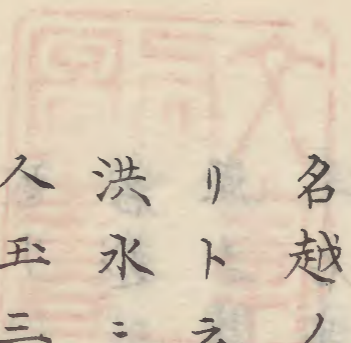 名越ノ
リトラ
洪水ニ
人玉三